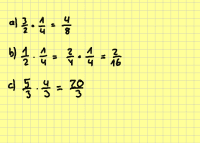 a) 3/2 · 1/4 = 4/8
b) 1/2 · 1/4 = 2/4 · 1/4 = 2/16
c) 5/3 · 4/3 = 20/3